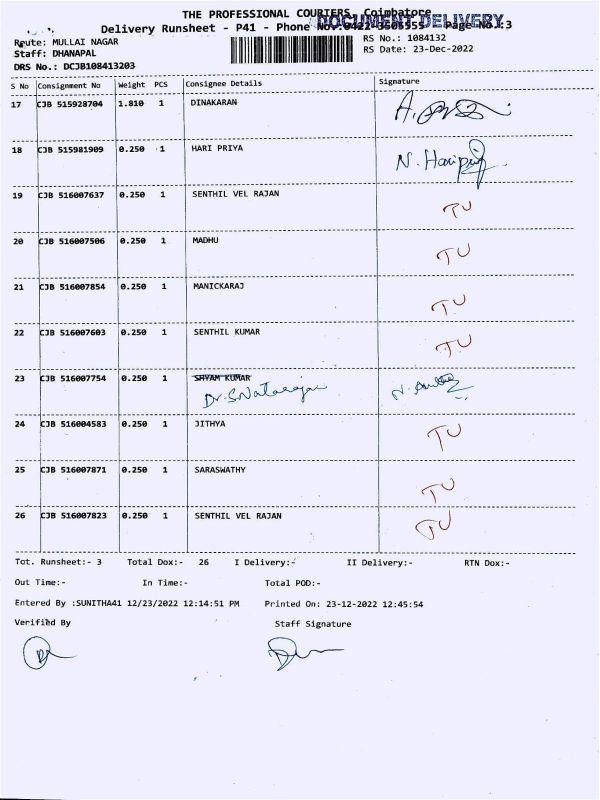 THE PROFESSIONAL COURIERS, Coimbatore
DOCUMENT DELIVERY
Delivery Runsheet - P41 - Phone No.: 0422-3505555 Page No.:3
Route: MULLAI NAGAR RS No.: 1084132
Staff: DHANAPAL RS Date: 23-Dec-2022
DRS No.: DCJB108413203
S No Consignment No Weight PCS Consignee Details Signature
17 CJB 515928704 1.810 1 DINAKARAN
18 CJB 515981909 0.250 1 HARI PRIYA N. Haripriya
19 CJB 516007637 0.250 1 SENTHIL VEL RAJAN TU
20 CJB 516007506 0.250 1 MADHU TU
21 CJB 516007854 0.250 1 MANICKARAJ TU
22 CJB 516007603 0.250 1 SENTHIL KUMAR TU
23 CJB 516007754 0.250 1 SHYAM KUMAR
Dr. S. Natarajan
24 CJB 516004583 0.250 1 JITHYA TU
25 CJB 516007871 0.250 1 SARASWATHY TU
26 CJB 516007823 0.250 1 SENTHIL VEL RAJAN TU
Tot. Runsheet:- 3 Total Dox:- 26 I Delivery:- II Delivery:- RTN Dox:-
Out Time:- In Time:- Total POD:-
Entered By :SUNITHA41 12/23/2022 12:14:51 PM Printed On: 23-12-2022 12:45:54
Verified By Staff Signature